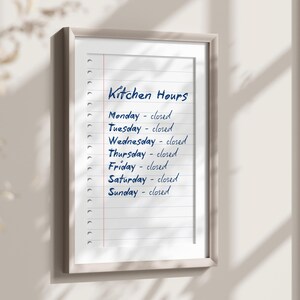 Kitchen Hours
Monday - closed
Tuesday - closed
Wednesday - closed
Thursday - closed
Friday - closed
Saturday - closed
Sunday - closed